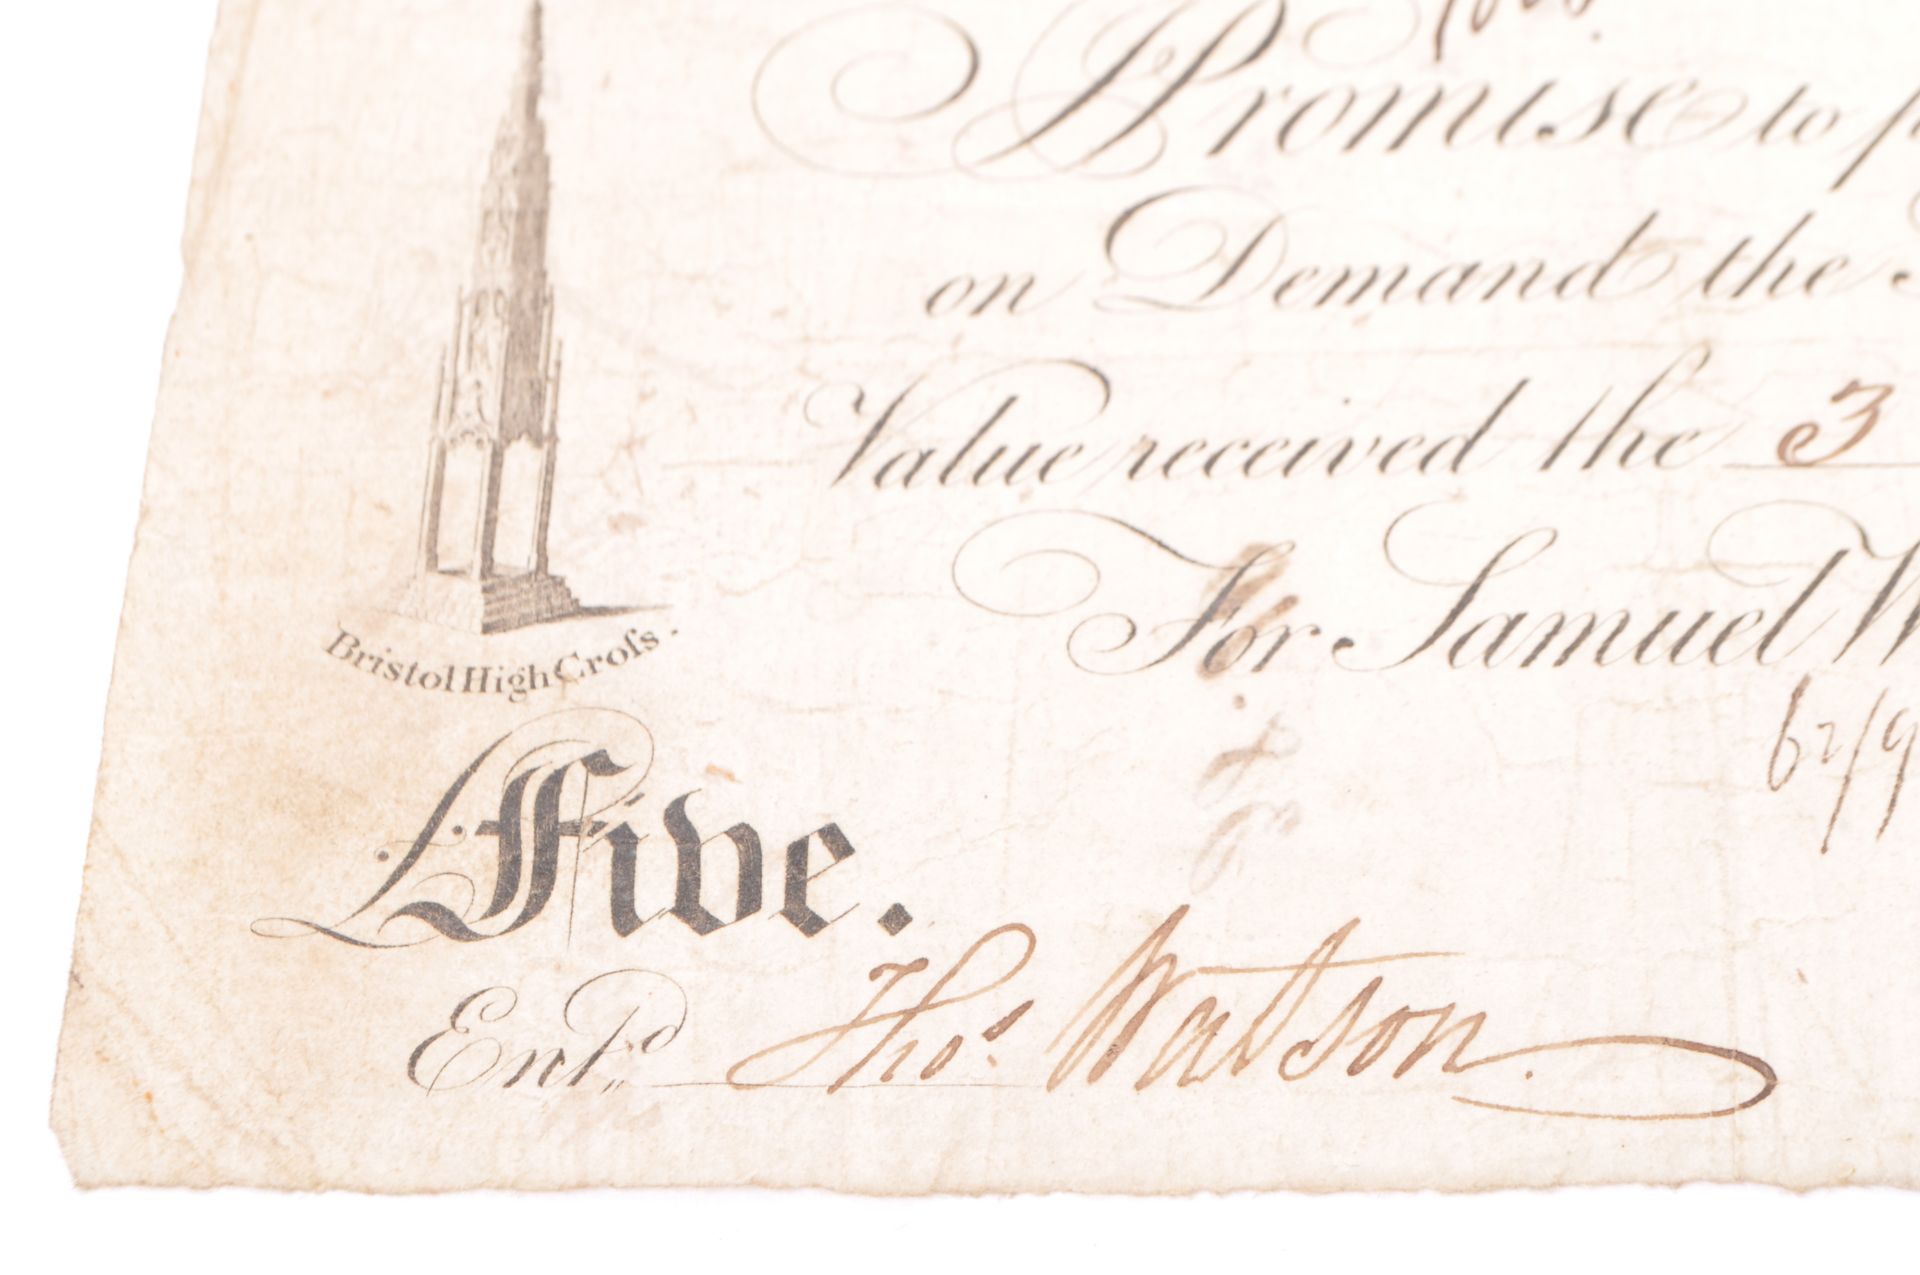 Promise to p
on Demand the
Value received the 3
For Samuel W
62/9
Bristol High Croſs.
Five.
Entd. Thos. Watson.